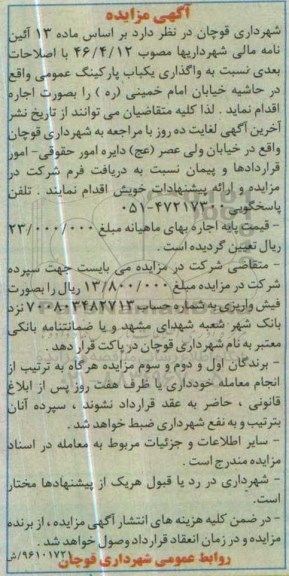 آگهی مزایده
شهرداری قوچان در نظر دارد بر اساس ماده ۱۳ آئین
نامه مالی شهرداریها مصوب ۴۶/۴/۱۲ با اصلاحات
بعدی نسبت به واگذاری یکباب پارکینگ عمومی واقع
در حاشیه خیابان امام خمینی (ره ) را بصورت اجاره
اقدام نماید . لذا کلیه متقاضیان می توانند از تاریخ نشر
آخرین آگهی لغایت ده روز با مراجعه به شهرداری قوچان
واقع در خیابان ولی عصر (عج) دایره امور حقوقی- امور
قراردادها و پیمان نسبت به دریافت فرم شرکت در
مزایده و ارائه پیشنهادات خویش اقدام نمایند . تلفن
پاسخگویی ۴۷۲۱۷۳۰۰-۰۵۱
- قیمت پایه اجاره بهای ماهیانه مبلغ ۲۳/۰۰۰/۰۰۰
ریال تعیین گردیده است .
- متقاضی شرکت در مزایده می بایست جهت سپرده
شرکت در مزایده مبلغ ۱۳/۸۰۰/۰۰۰ ریال را بصورت
فیش واریزی به شماره حساب ۷۰۰۸۰۳۴۸۲۷۱۳ نزد
بانک شهر شعبه شهدای مشهد و یا ضمانتنامه بانکی
معتبر به نام شهرداری قوچان در پاکت قرار دهد .
- برندگان اول و دوم و سوم مزایده هرگاه به ترتیب از
انجام معامله خودداری یا ظرف هفت روز پس از ابلاغ
قانونی ، حاضر به عقد قرارداد نشوند ، سپرده آنان
بترتیب و به نفع شهرداری ضبط خواهد شد .
- سایر اطلاعات و جزئیات مربوط به معامله در اسناد
مزایده مندرج است .
- شهرداری در رد یا قبول هریک از پیشنهادها مختار
است.
- در ضمن کلیه هزینه های انتشار آگهی مزایده ، از برنده
مزایده و در زمان انعقاد قرارداد وصول خواهد شد .
۹۶۱۰۱۷۲۱/ش
روابط عمومی شهرداری قوچان